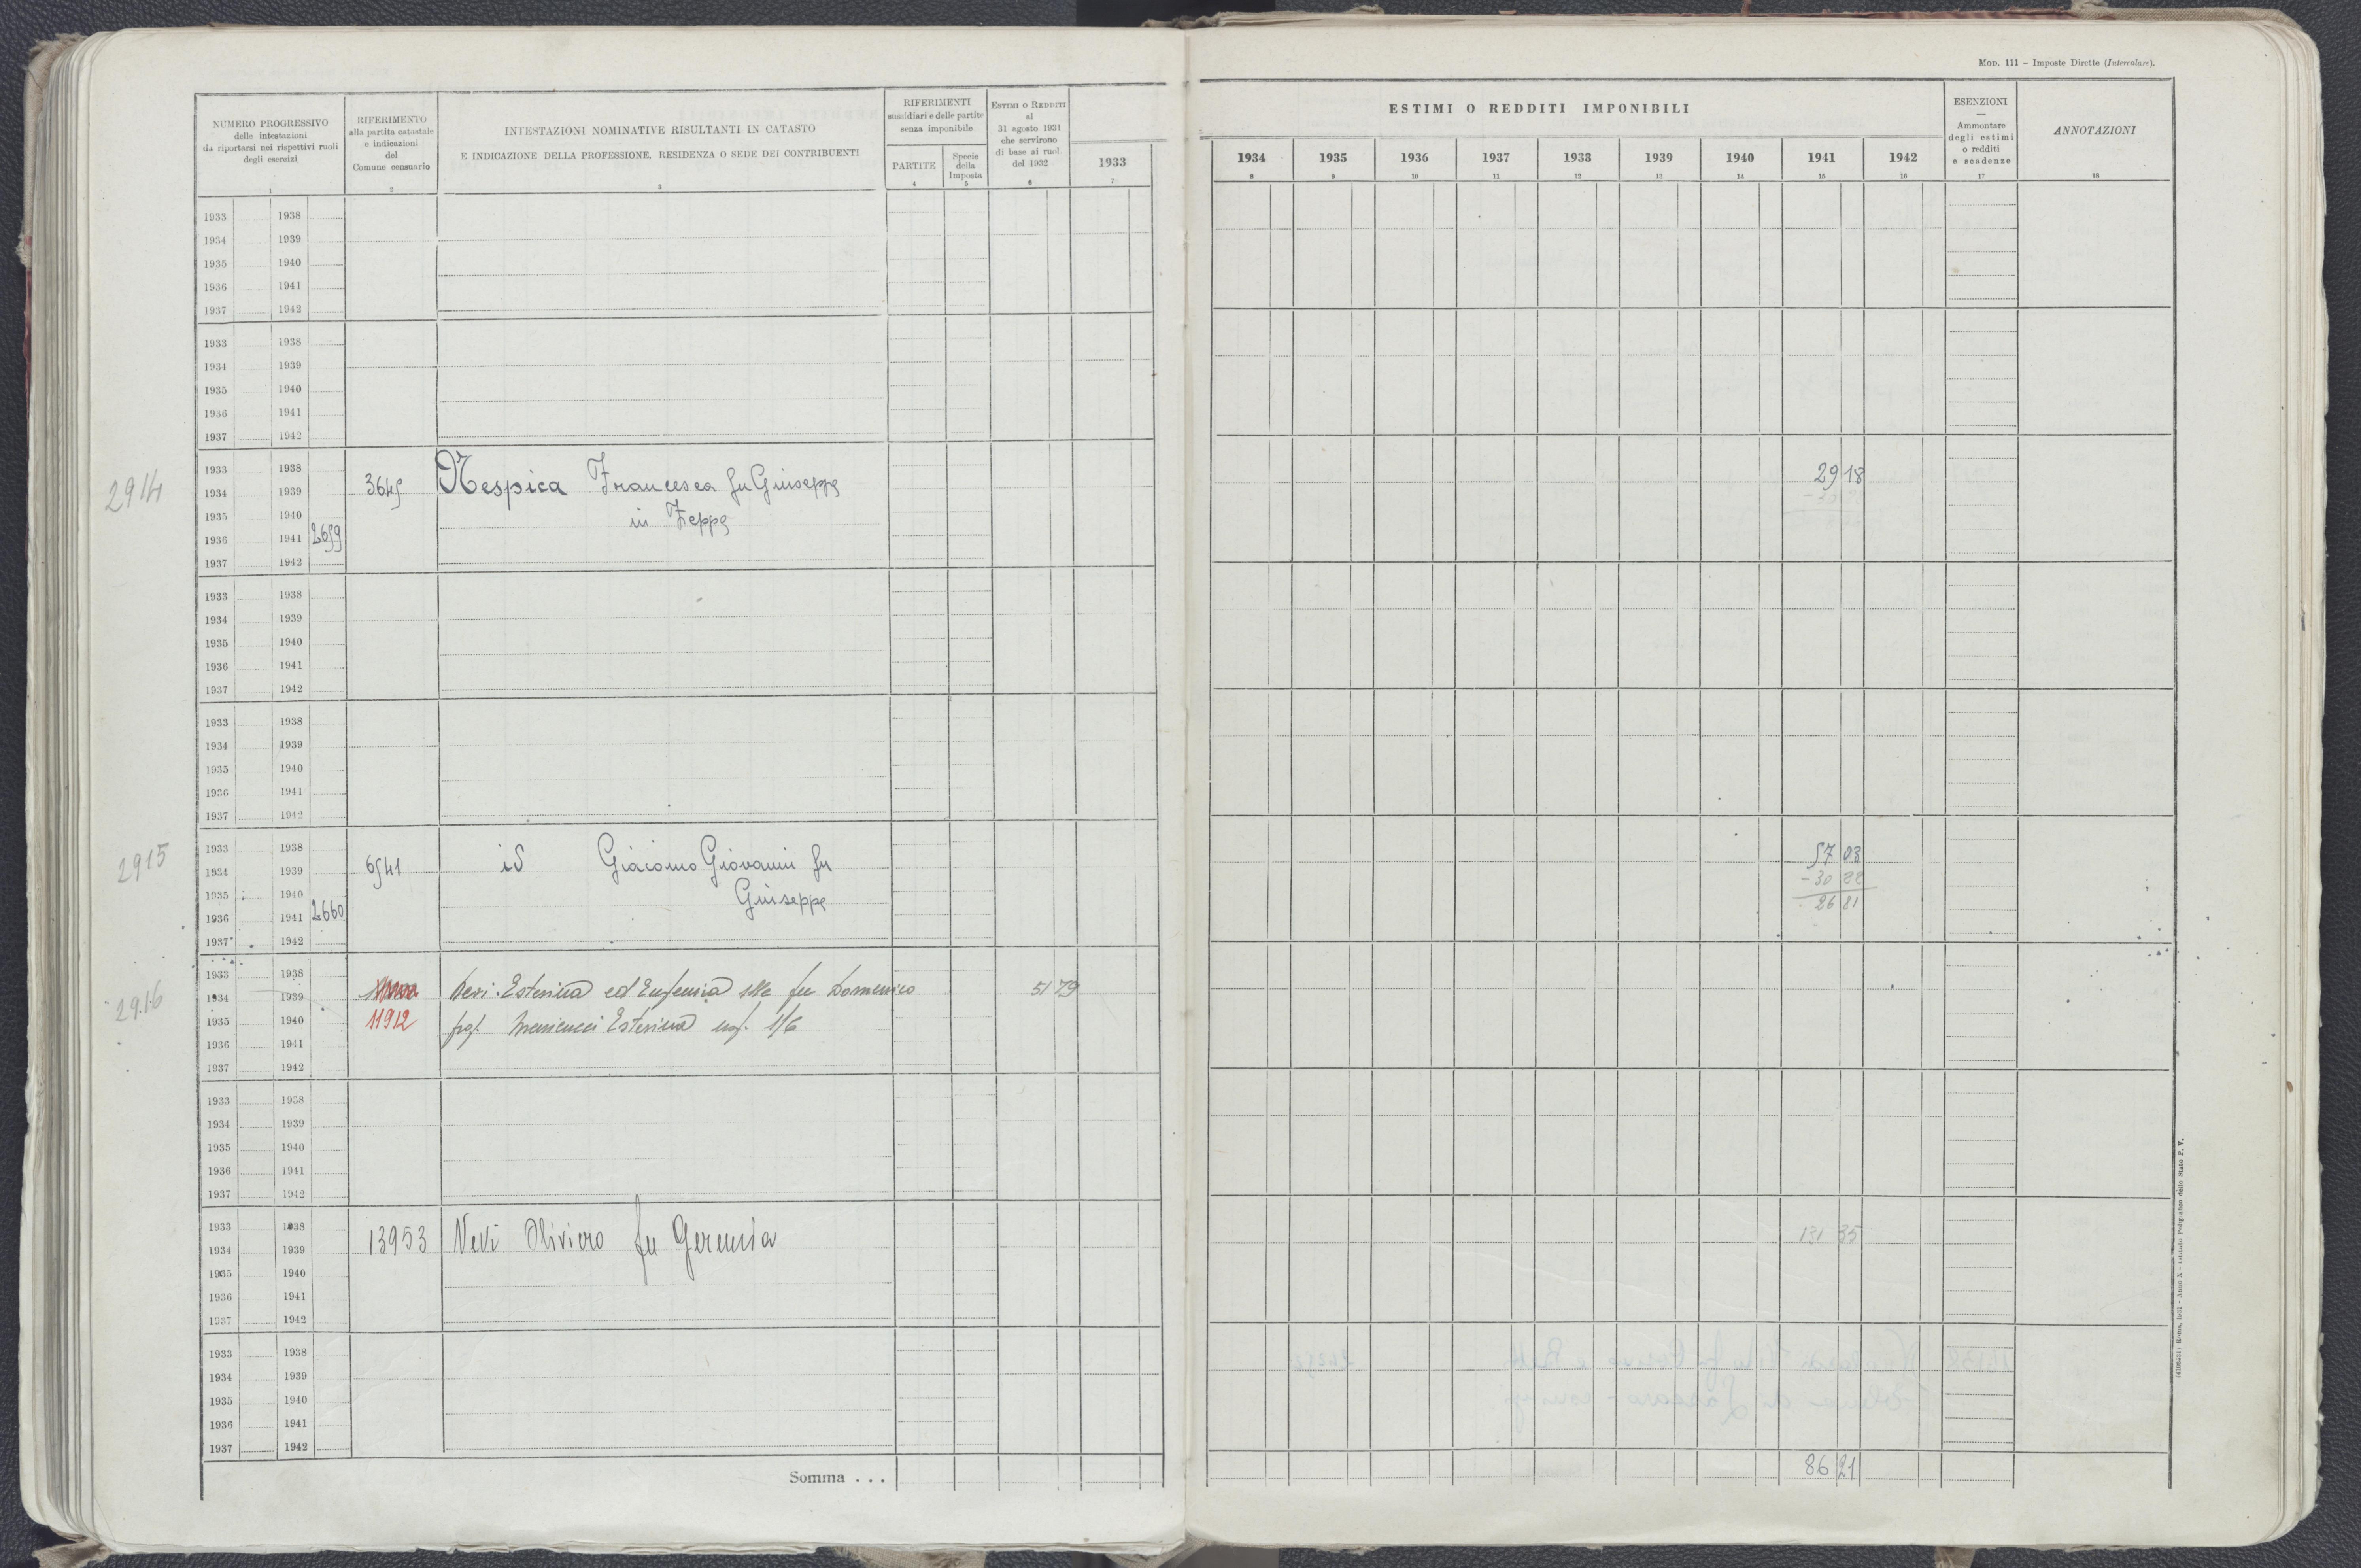 MOD. 111 – Imposte Dirette (Intercalare).
NUMERO PROGRESSIVO
delle intestazioni
da riportarsi nei rispettivi ruoli
degli esercizi
1
RIFERIMENTO
alla partita catastale
e indicazioni
del
Comune censuario
2
INTESTAZIONI NOMINATIVE RISULTANTI IN CATASTO
E INDICAZIONE DELLA PROFESSIONE, RESIDENZA O SEDE DEI CONTRIBUENTI
3
RIFERIMENTI
sussidiari e delle partite
senza imponibile
PARTITE
4
Specie
della
Imposta
5
ESTIMI O REDDITI
al
31 agosto 1931
che servirono
di base ai ruoli
del 1932
6
1933
7
ESTIMI O REDDITI IMPONIBILI
1934 1935 1936 1937 1938 1939 1940 1941 1942
8 9 10 11 12 13 14 15 16
ESENZIONI
—
Ammontare
degli estimi
o redditi
e scadenze
17
ANNOTAZIONI
18
1933 1938
1934 1939
1935 1940
1936 1941
1937 1942
1933 1938
1934 1939
1935 1940
1936 1941
1937 1942
1933 1938
2914 1934 1939 3645 Nespica Francesca fu Giuseppe 29 18
1935 1940 in Zeppe
1936 1941 2659
1937 1942
1933 1938
1934 1939
1935 1940
1936 1941
1937 1942
1933 1938
1934 1939
1935 1940
1936 1941
1937 1942
1933 1938
2915 1934 1939 6541 id Giacomo Giovanni fu 57 03
1935 1940 Giuseppe - 30 22
1936 1941 2660 26 81
1937 1942
1933 1938
2916 1934 1939 Neri Esterina ed Eufemia slle fu Domenico 51 79
1935 1940 11912 Menicucci Esterina usf. 1/6
1936 1941
1937 1942
1933 1938
1934 1939
1935 1940
1936 1941
1937 1942
1933 1938
1934 1939 13953 Nevi Oliviero fu Geremia 131 35
1935 1940
1936 1941
1937 1942
1933 1938
1934 1939
1935 1940
1936 1941
1937 1942
Somma . . . 86 21